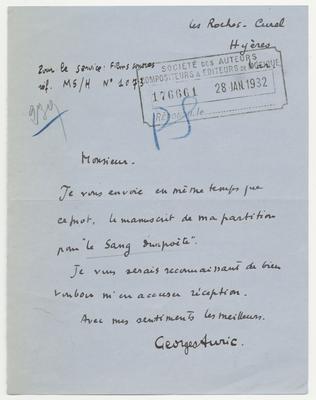 Les Roches-Curel
Hyères
Pour le service: Films sonores
réf. MS/H N° 1073
SOCIÉTÉ DES AUTEURS
COMPOSITEURS & ÉDITEURS DE MUSIQUE
176661 28 JAN. 1932
Répondu le
PS
Monsieur.
Je vous envoie en même temps que
ce mot, le manuscrit de ma partition
pour "le Sang d'un poète".
Je vous serais reconnaissant de bien
vouloir m'en accuser réception.
Avec mes sentiments les meilleurs.
Georges Auric.